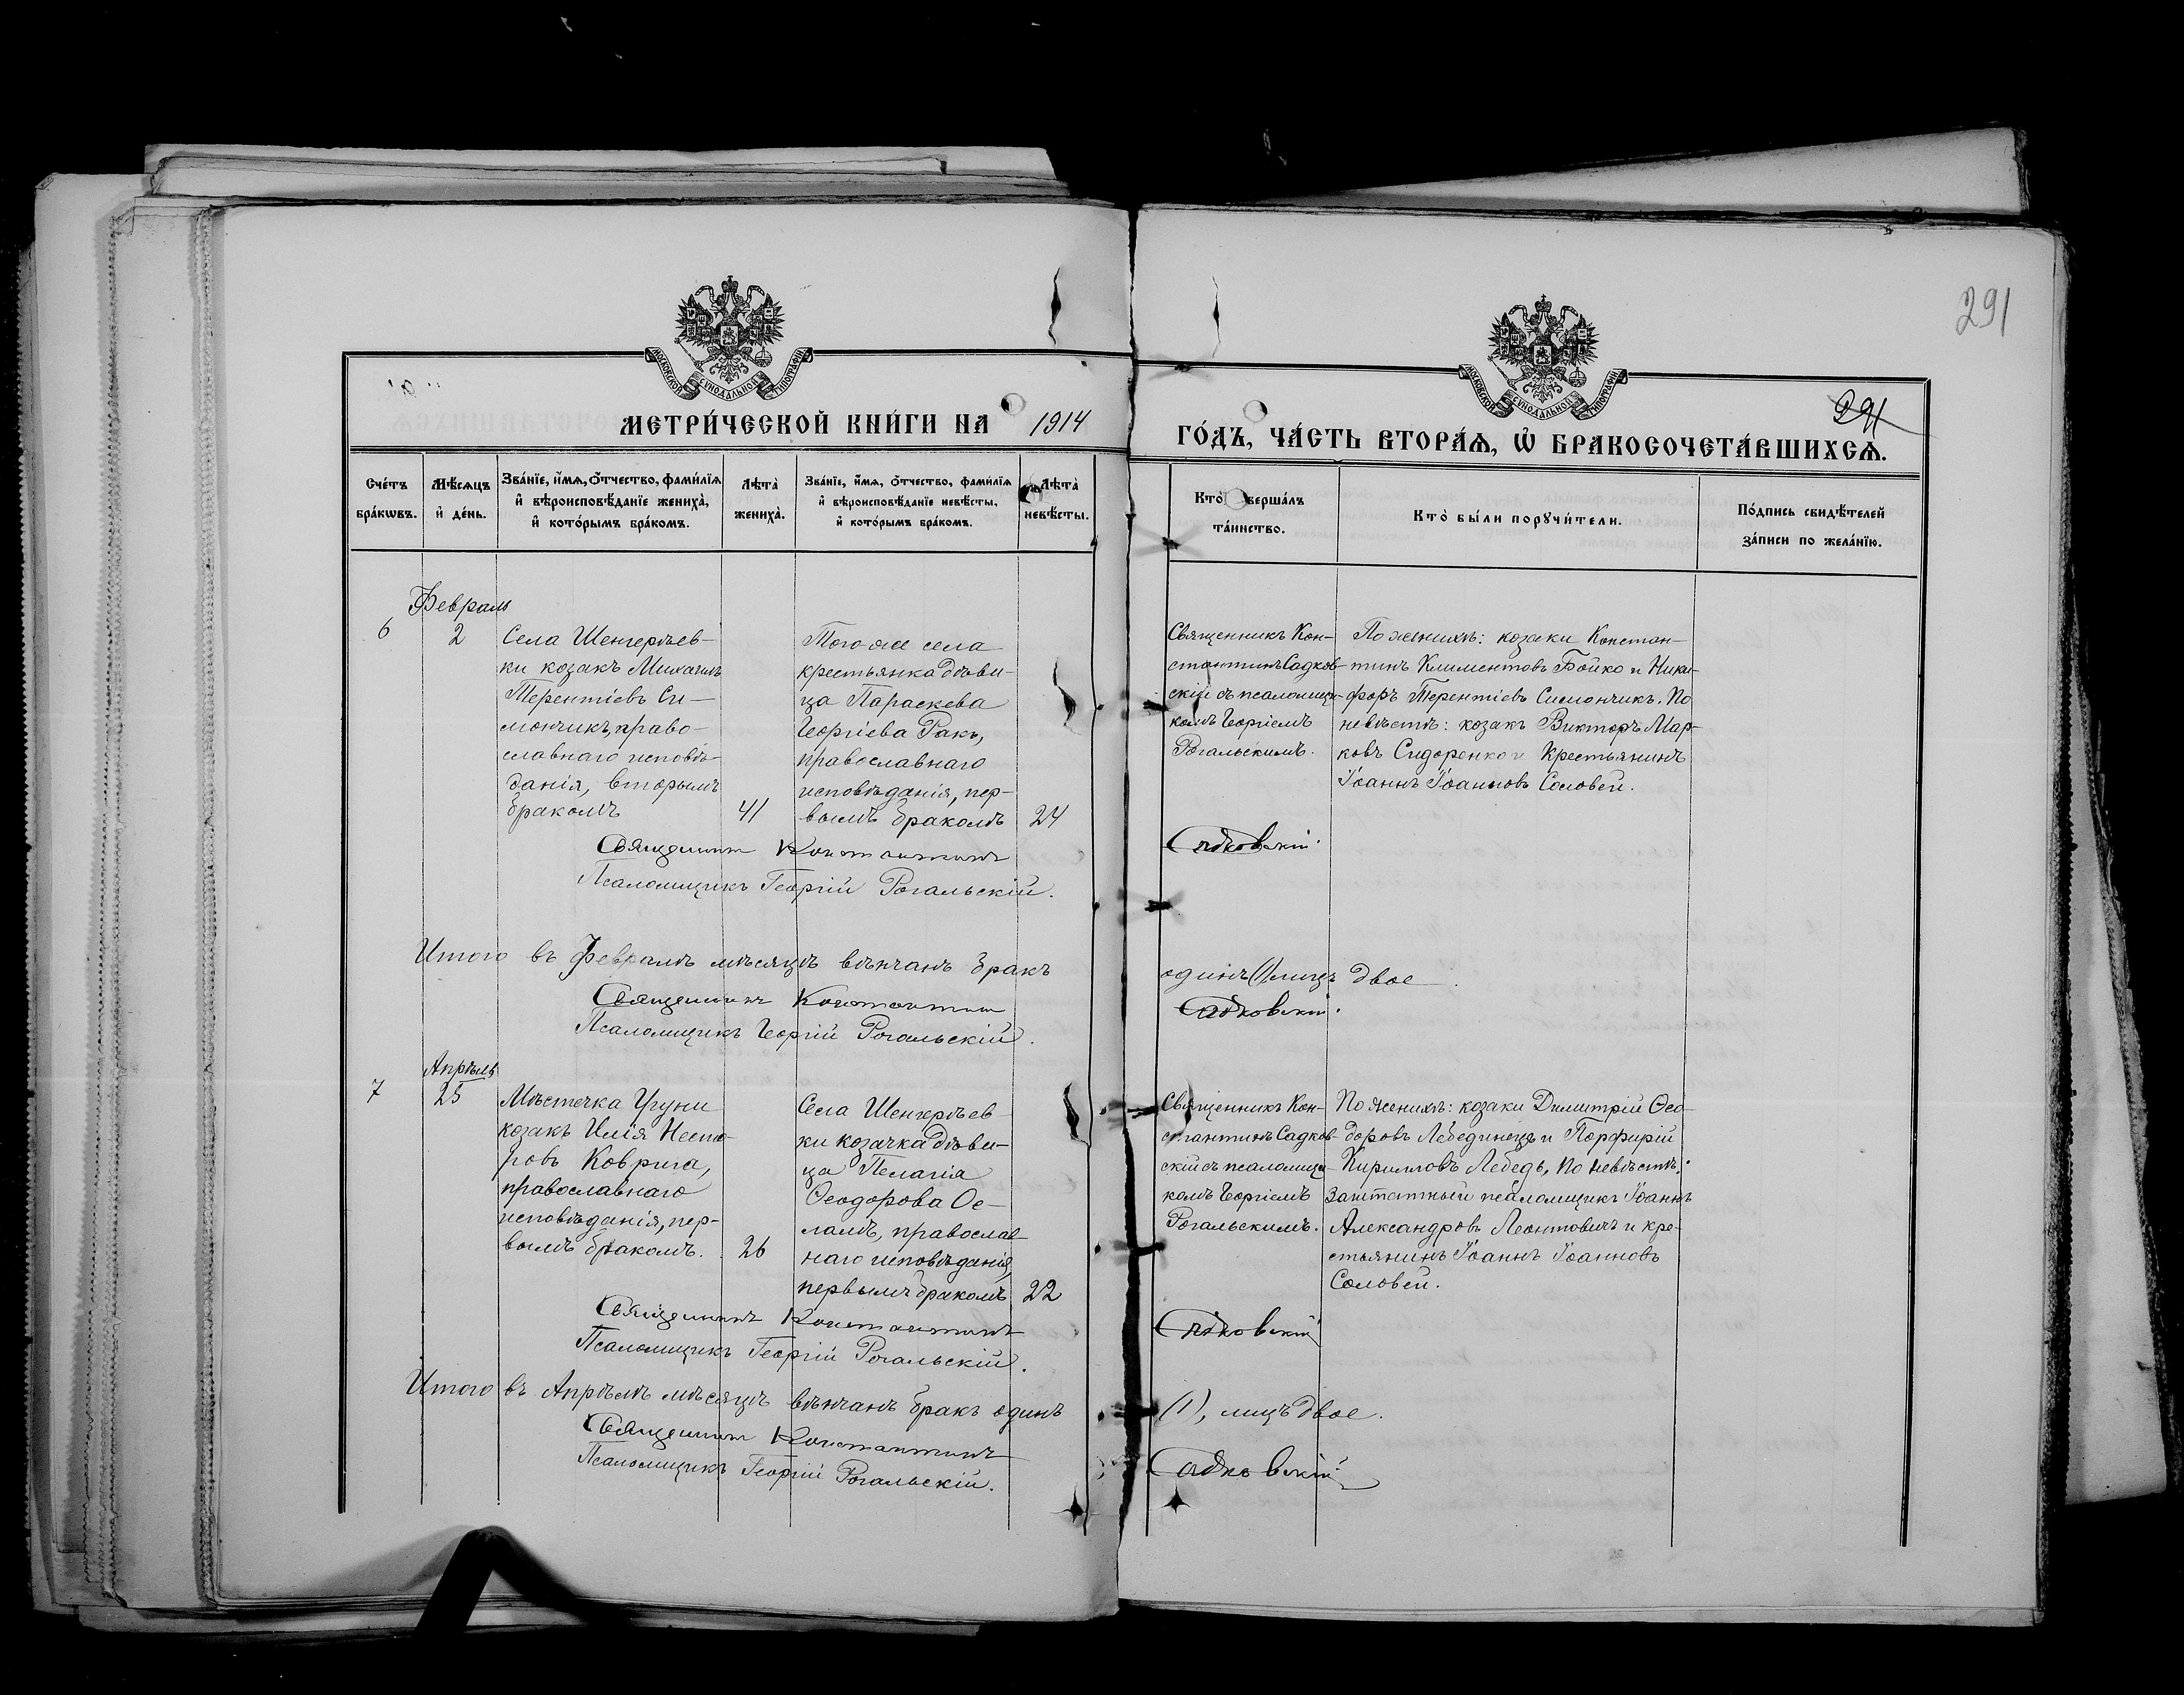 291
291
МОСКОВСКОЙ СѴНОДАЛЬНОЙ ТИПОГРАФІИ
МОСКОВСКОЙ СѴНОДАЛЬНОЙ ТИПОГРАФІИ
МЕТРИ́ЧЕСКОЙ КНИ́ГИ НА 1914
ГО́ДЪ, ЧА́СТЬ ВТОРА́Я, Ѡ҆ БРАКОСОЧЕТА́ВШИХСѦ.
Сче́тъ
бра́кѡвъ.
Мѣ́сяцъ
и҆ де́нь.
Зва́нїе, и҆́мѧ, ѻ҆́тчество, фами́лїѧ
и҆ вѣроисповѣ́данїе жениха̀,
и҆ кото́рымъ бра́комъ.
Лѣта̀
жениха̀.
Зва́нїе, и҆́мѧ, ѻ҆́тчество, фами́лїѧ
и҆ вѣроисповѣ́данїе невѣ́сты,
и҆ кото́рымъ бра́комъ.
Лѣта̀
невѣ́сты.
Кто̀ верша́лъ
та́инство.
Кто̀ бы́ли порꙋчи́тели.
По́дпись свидѣ́телей
за́писи по жела́нїю.
Февраль
6
2
Села Шенгерѣев-
ки козакъ Михаилъ
Терентіевъ Си-
мончикъ, право-
славнаго исповѣ-
данія, вторымъ
бракомъ
41
Того же села
крестьянка дѣви-
ца Параскева
Георгіева Ракъ,
православнаго
исповѣданія, пер-
вымъ бракомъ
24
Священникъ Кон-
стантинъ Садков-
скій съ псаломщи-
комъ Георгіемъ
Рогальскимъ.
По женихѣ: козаки Констан-
тинъ Климентовъ Бойко и Ники-
форъ Терентіевъ Симончикъ. По
невѣстѣ: козакъ Викторъ Мар-
ковъ Сидоренко и крестьянинъ
Іоаннъ Іоанновъ Соловей.
Священникъ Константинъ Садковскій.
Псаломщикъ Георгій Рогальскій.
Итого въ Февралѣ мѣсяцѣ вѣнчанъ бракъ одинъ (1) лицъ двое
Священникъ Константинъ Садковскій.
Псаломщикъ Георгій Рогальскій.
Апрѣль
7
25
Мѣстечка Угуни
козакъ Илія Несто-
ровъ Коврига,
православнаго
исповѣданія, пер-
вымъ бракомъ.
26
Села Шенгерѣев-
ки козачка дѣви-
ца Пелагія
Ѳеодорова Ос-
ламъ, православ-
наго исповѣданія,
первымъ бракомъ
22
Священникъ Кон-
стантинъ Садков-
скій съ псаломщи-
комъ Георгіемъ
Рогальскимъ.
По женихѣ: козаки Димитрій Ѳео-
доровъ Лебединецъ и Порфирій
Кирилловъ Лебедь, по невѣстѣ:
заштатный псаломщикъ Іоаннъ
Александровъ Леонтовичъ и кре-
стьянинъ Іоаннъ Іоанновъ
Соловей.
Священникъ Константинъ Садковскій
Псаломщикъ Георгій Рогальскій.
Итого въ Апрѣлѣ мѣсяцѣ вѣнчанъ бракъ одинъ (1), лицъ двое.
Священникъ Константинъ Садковскій
Псаломщикъ Георгій Рогальскій.